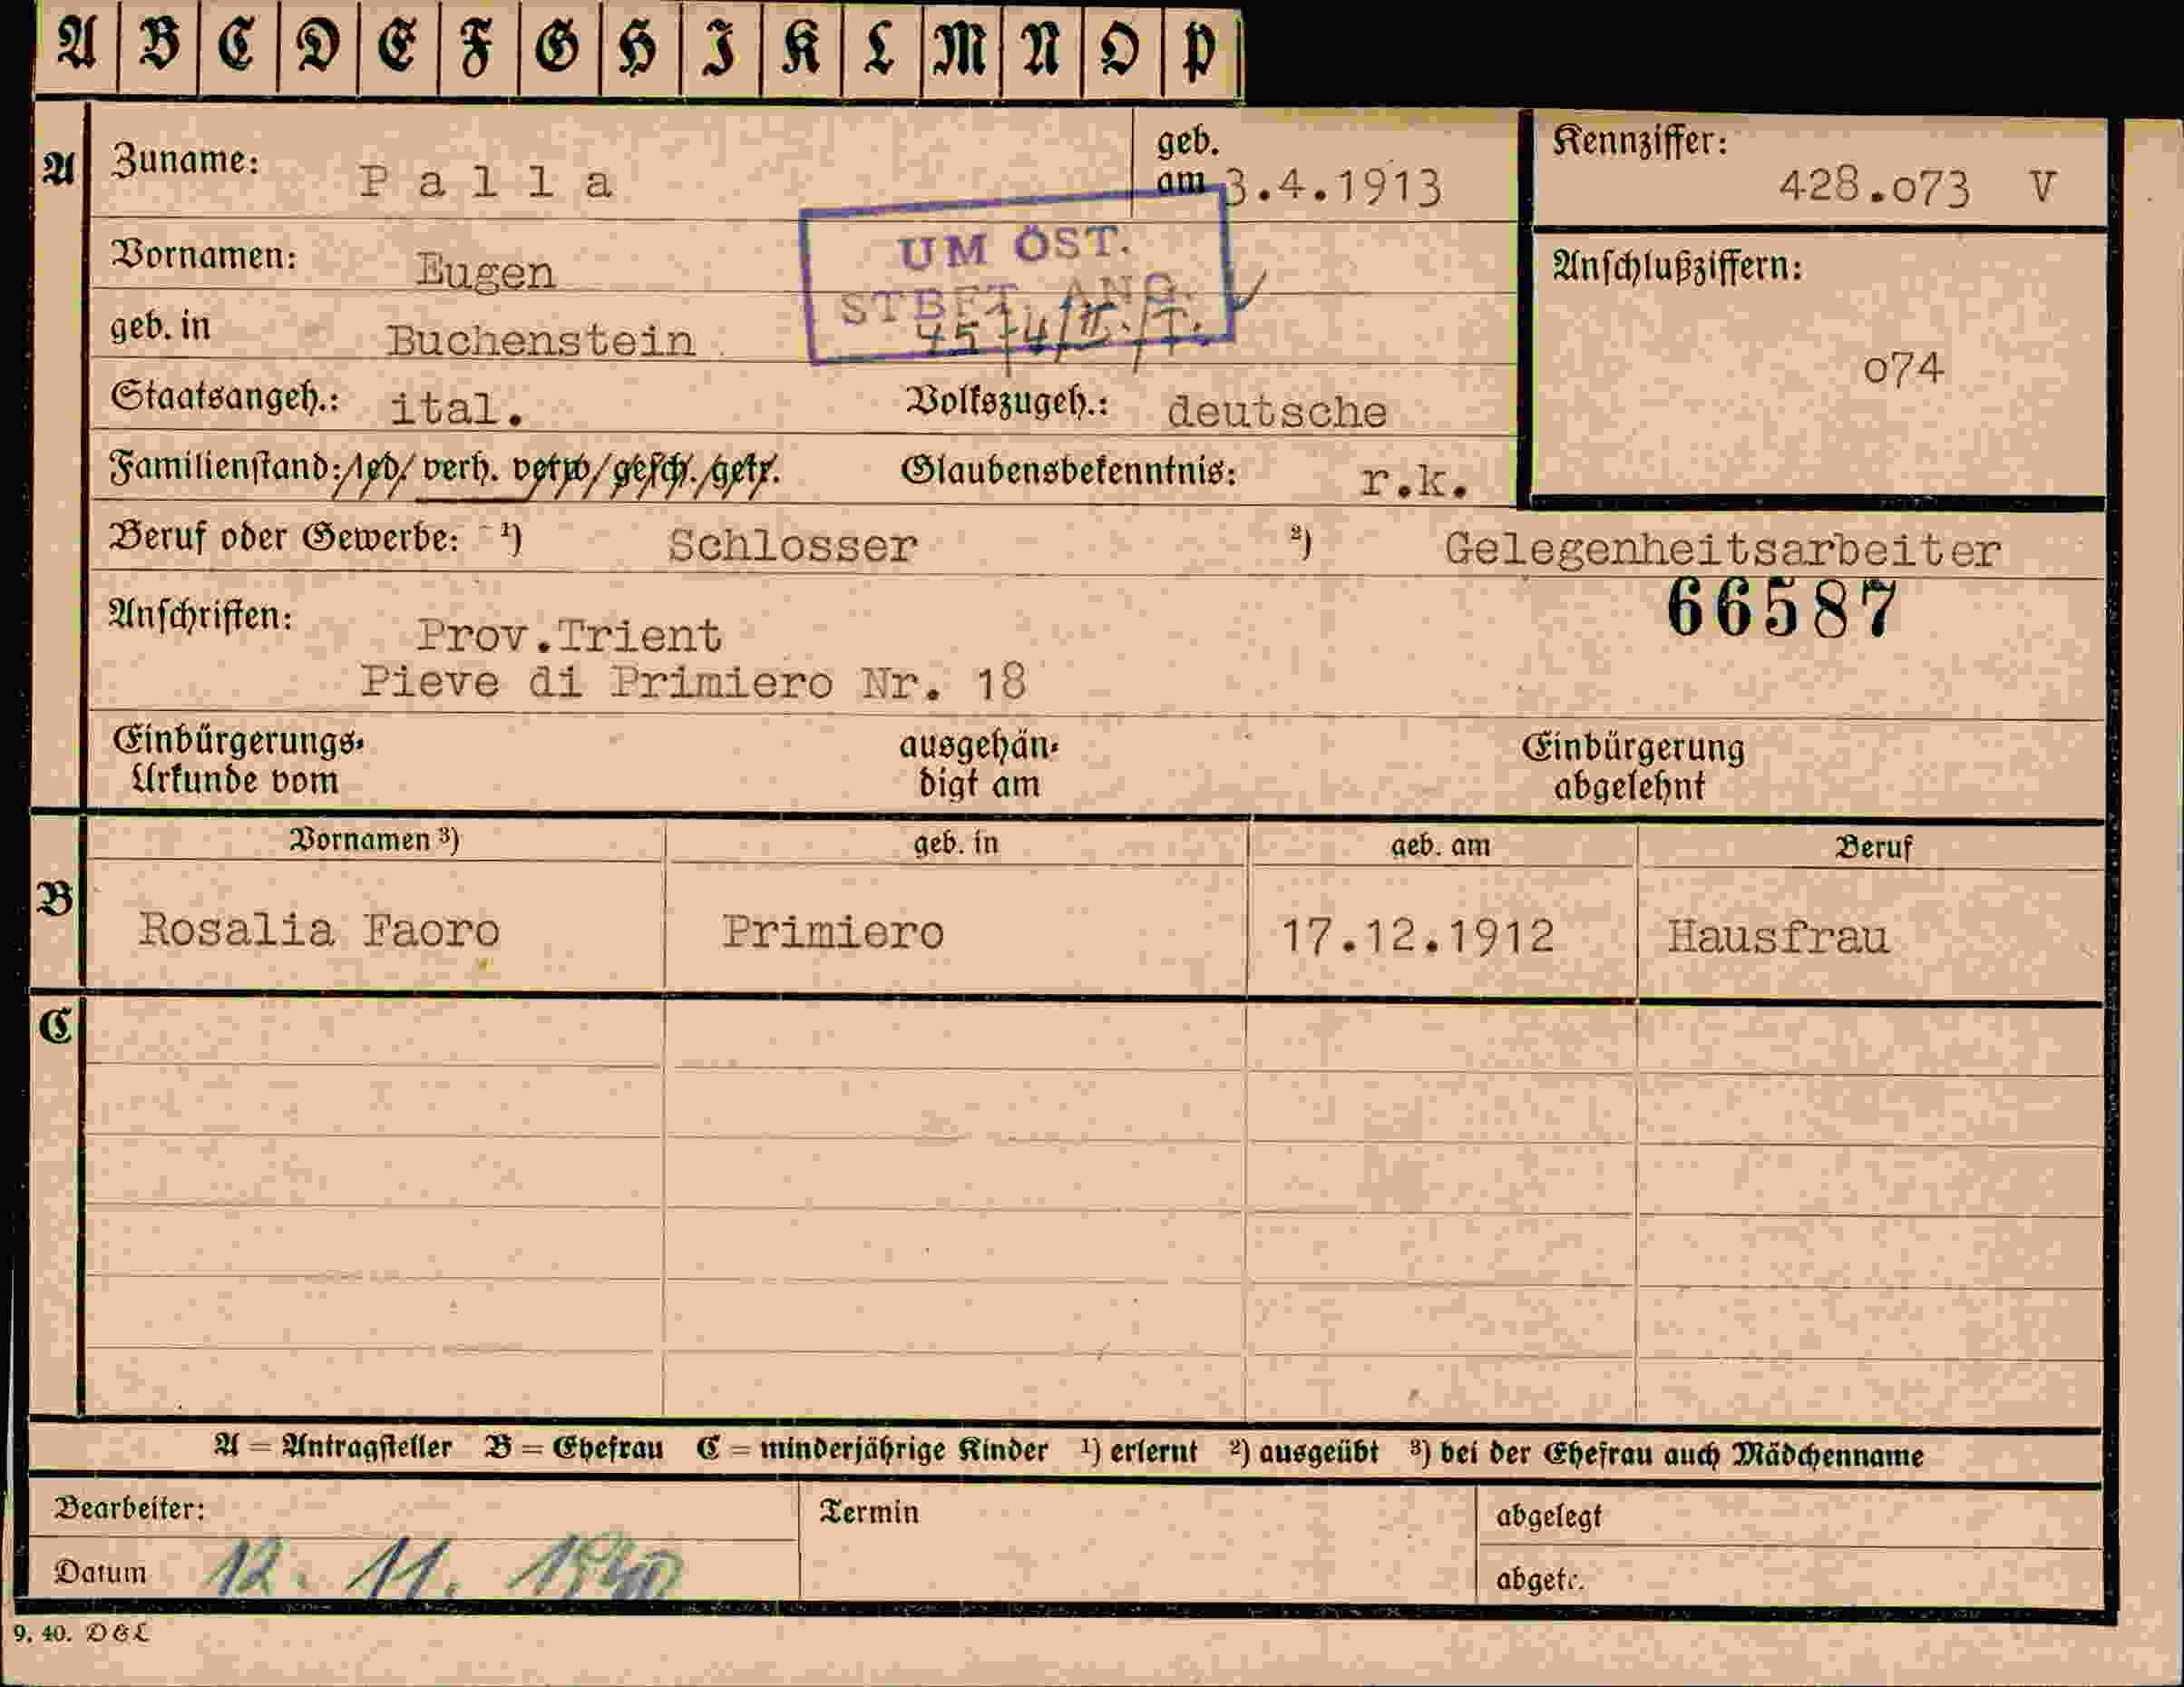 A B C D E F G H I K L M N O P
A Zuname: Palla geb. am 3.4.1913 Kennziffer: 428.o73 V
Vornamen: Eugen
UM ÖST.
STBFT. ANG.
geb. in Buchenstein
Anschlußziffern:
o74
Staatsangeh.: ital. Volkszugeh.: deutsche
Familienstand: led/ verh. verw/ gesch./getr. Glaubensbekenntnis: r.k.
Beruf oder Gewerbe: ¹) Schlosser ²) Gelegenheitsarbeiter
66587
Anschriften: Prov.Trient
Pieve di Primiero Nr. 18
Einbürgerungs- ausgehän- Einbürgerung
Urkunde vom digt am abgelehnt
B Vornamen ³) geb. in geb. am Beruf
Rosalia Faoro Primiero 17.12.1912 Hausfrau
C
A = Antragsteller B = Ehefrau C = minderjährige Kinder ¹) erlernt ²) ausgeübt ³) bei der Ehefrau auch Mädchenname
Bearbeiter: Termin abgelegt
Datum 12. 11. 1940 abgetr.
9. 40. D&L